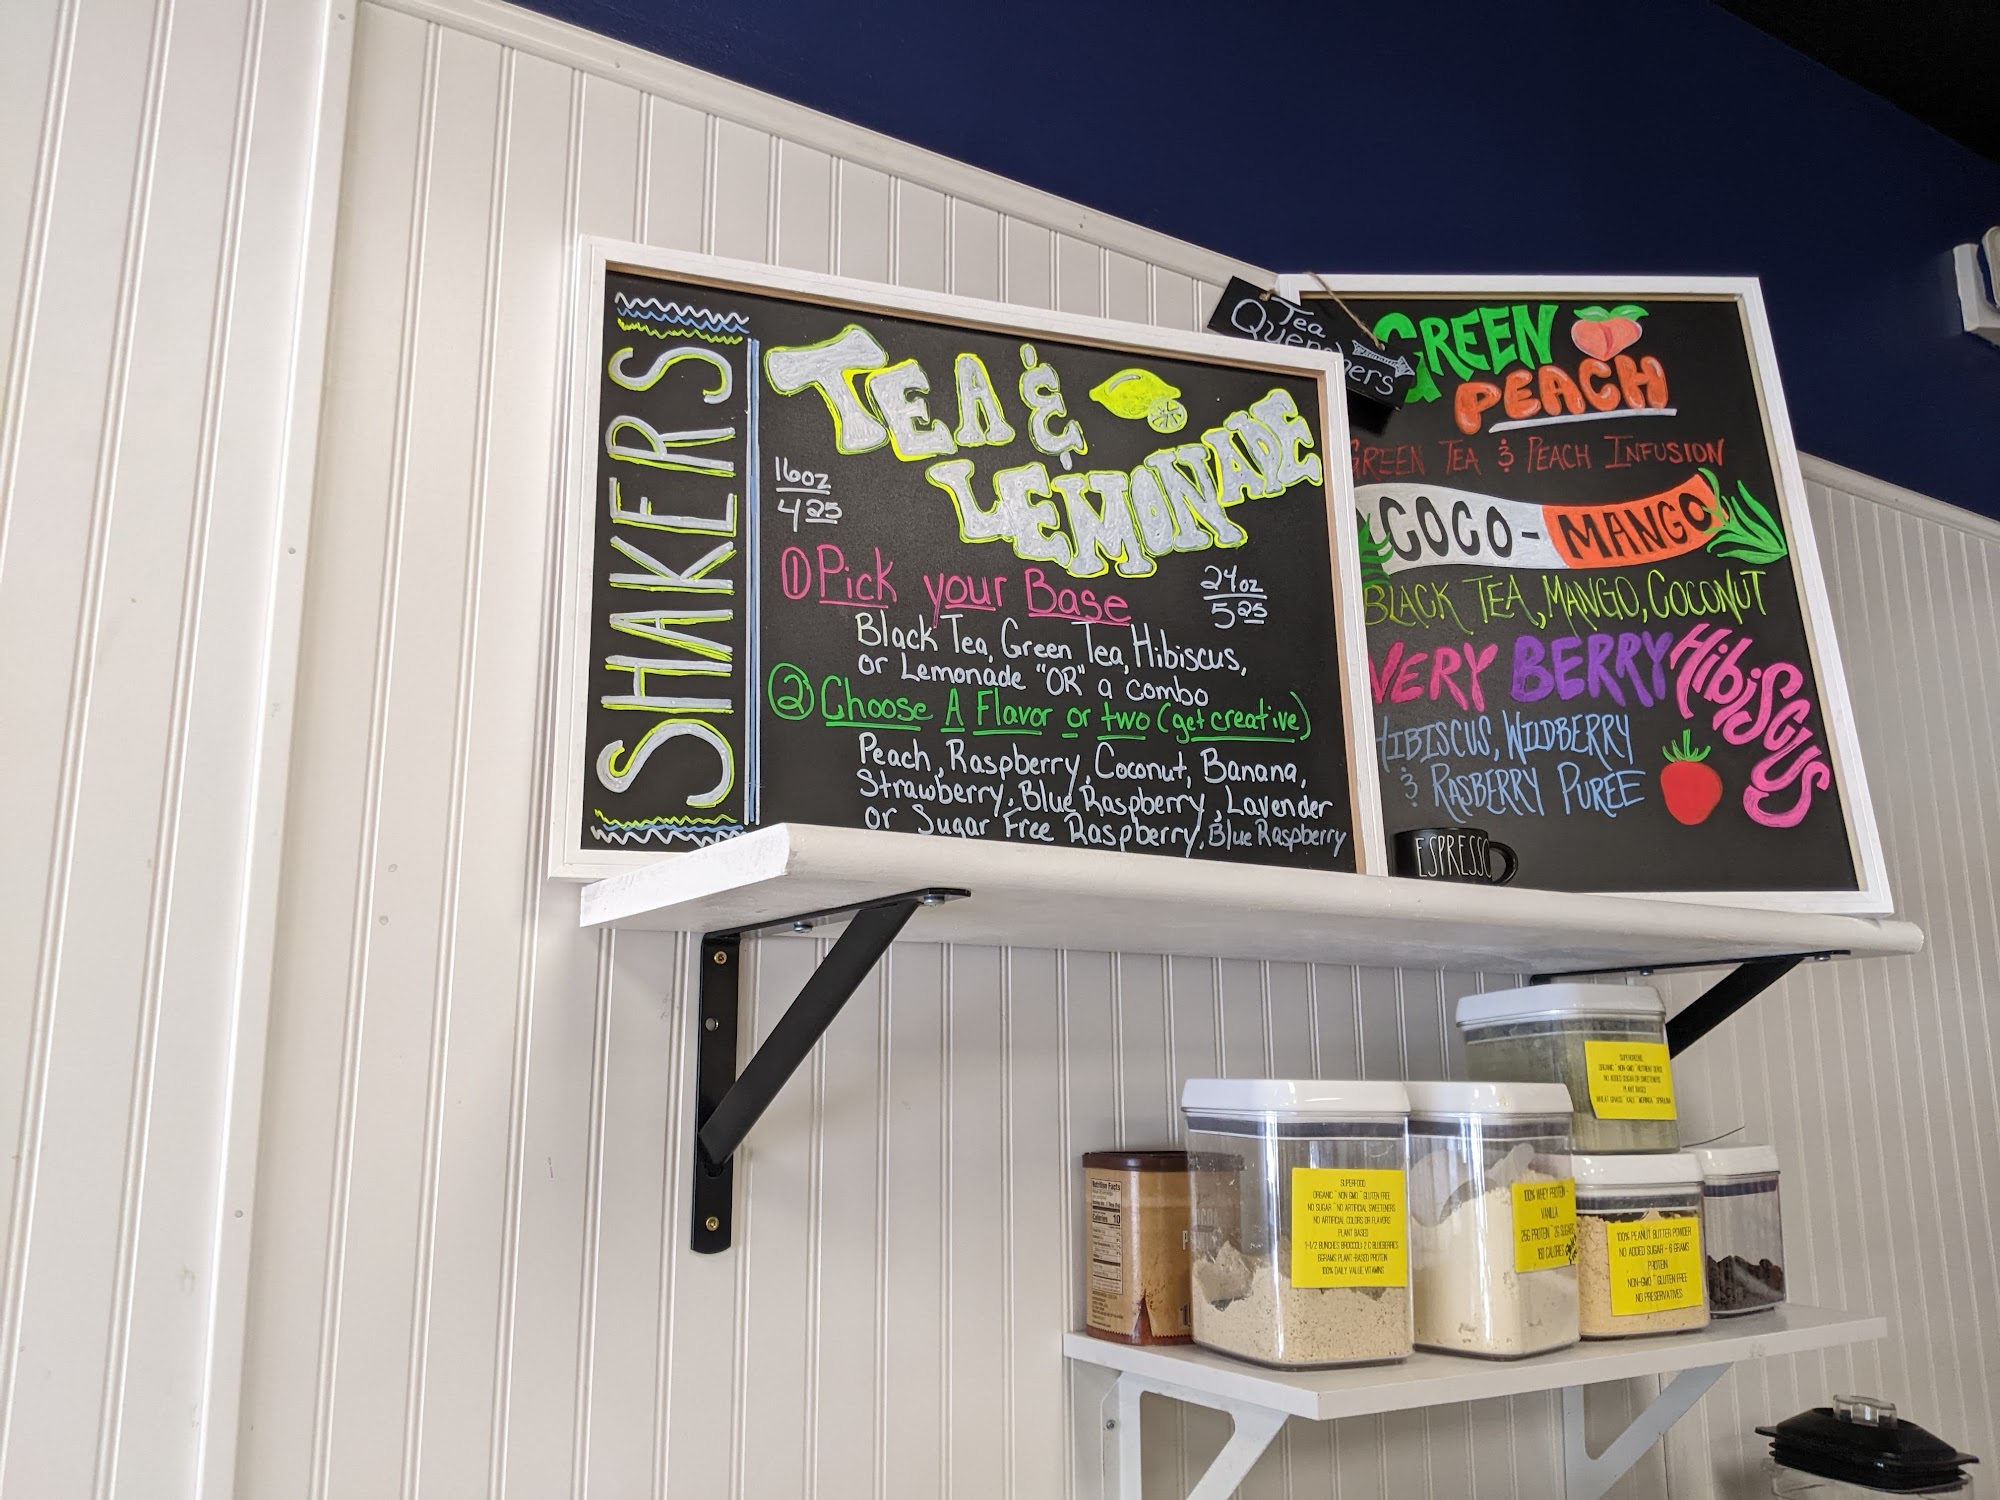 SHAKERS
TEA &
LEMONADE
16oz
4 25
24oz
5 25
① Pick your Base
Black Tea, Green Tea, Hibiscus,
or Lemonade "OR" a combo
② Choose A Flavor or two (get creative)
Peach, Raspberry, Coconut, Banana,
Strawberry, Blue Raspberry, Lavender
or Sugar Free Raspberry, Blue Raspberry
Tea
Quenchers
GREEN
PEACH
GREEN TEA & PEACH INFUSION
COCO-MANGO
BLACK TEA, MANGO, COCONUT
VERY BERRY Hibiscus
HIBISCUS, WILDBERRY
& RASBERRY PUREE
ESPRESSO
SUPERGREENS
ORGANIC~NON-GMO~NUTRIENT DENSE
NO ADDED SUGAR OR SWEETENERS
PLANT BASED
WHEAT GRASS~KALE~MORINGA~SPIRULINA
Nutrition Facts
Calories 10
SUPERFOOD
ORGANIC~NON GMO~GLUTEN FREE
NO SUGAR~NO ARTIFICIAL SWEETENERS
NO ARTIFICIAL COLORS OR FLAVORS
PLANT BASED
1-1/2 BUNCHES BROCCOLI 2 C BLUEBERRIES
6GRAMS PLANT-BASED PROTEIN
100% DAILY VALUE VITAMINS
100% WHEY PROTEIN -
VANILLA
25G PROTEIN~2G SUGARS
160 CALORIES
100% PEANUT BUTTER POWDER
NO ADDED SUGAR - 6 GRAMS
PROTEIN
NON-GMO~GLUTEN FREE
NO PRESERVATIVES